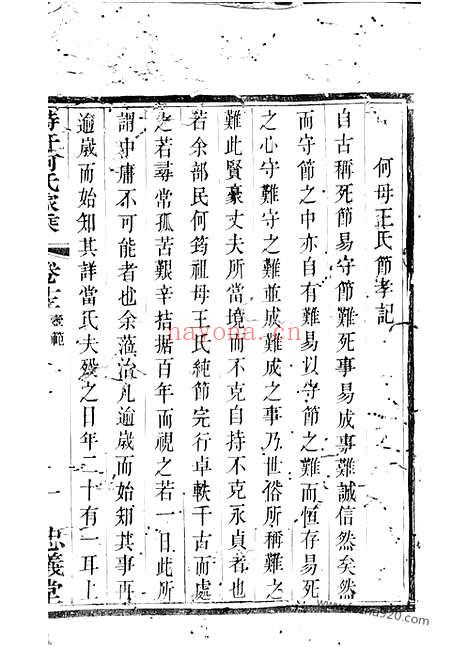 何母王氏節孝記
自古稱死節易守節難死事易成事難誠信然矣然
而守節之中亦自有難易以守節之難而恒存易死
之心守難守之難並成難成之事乃世俗所稱難之
難此賢豪丈夫所當境而不克自持不克永貞者也
若余部民何筠祖母王氏純節完行卓軼千古而處
之若尋常孤苦艱辛拮据百年而視之若一日此所
謂中庸不可能者也余蒞治凡逾歲而始知其事再
逾歲而始知其詳當氏夫歿之日年二十有一耳上
何氏家乘
卷十三
壼範
忠義堂
nayona.cn